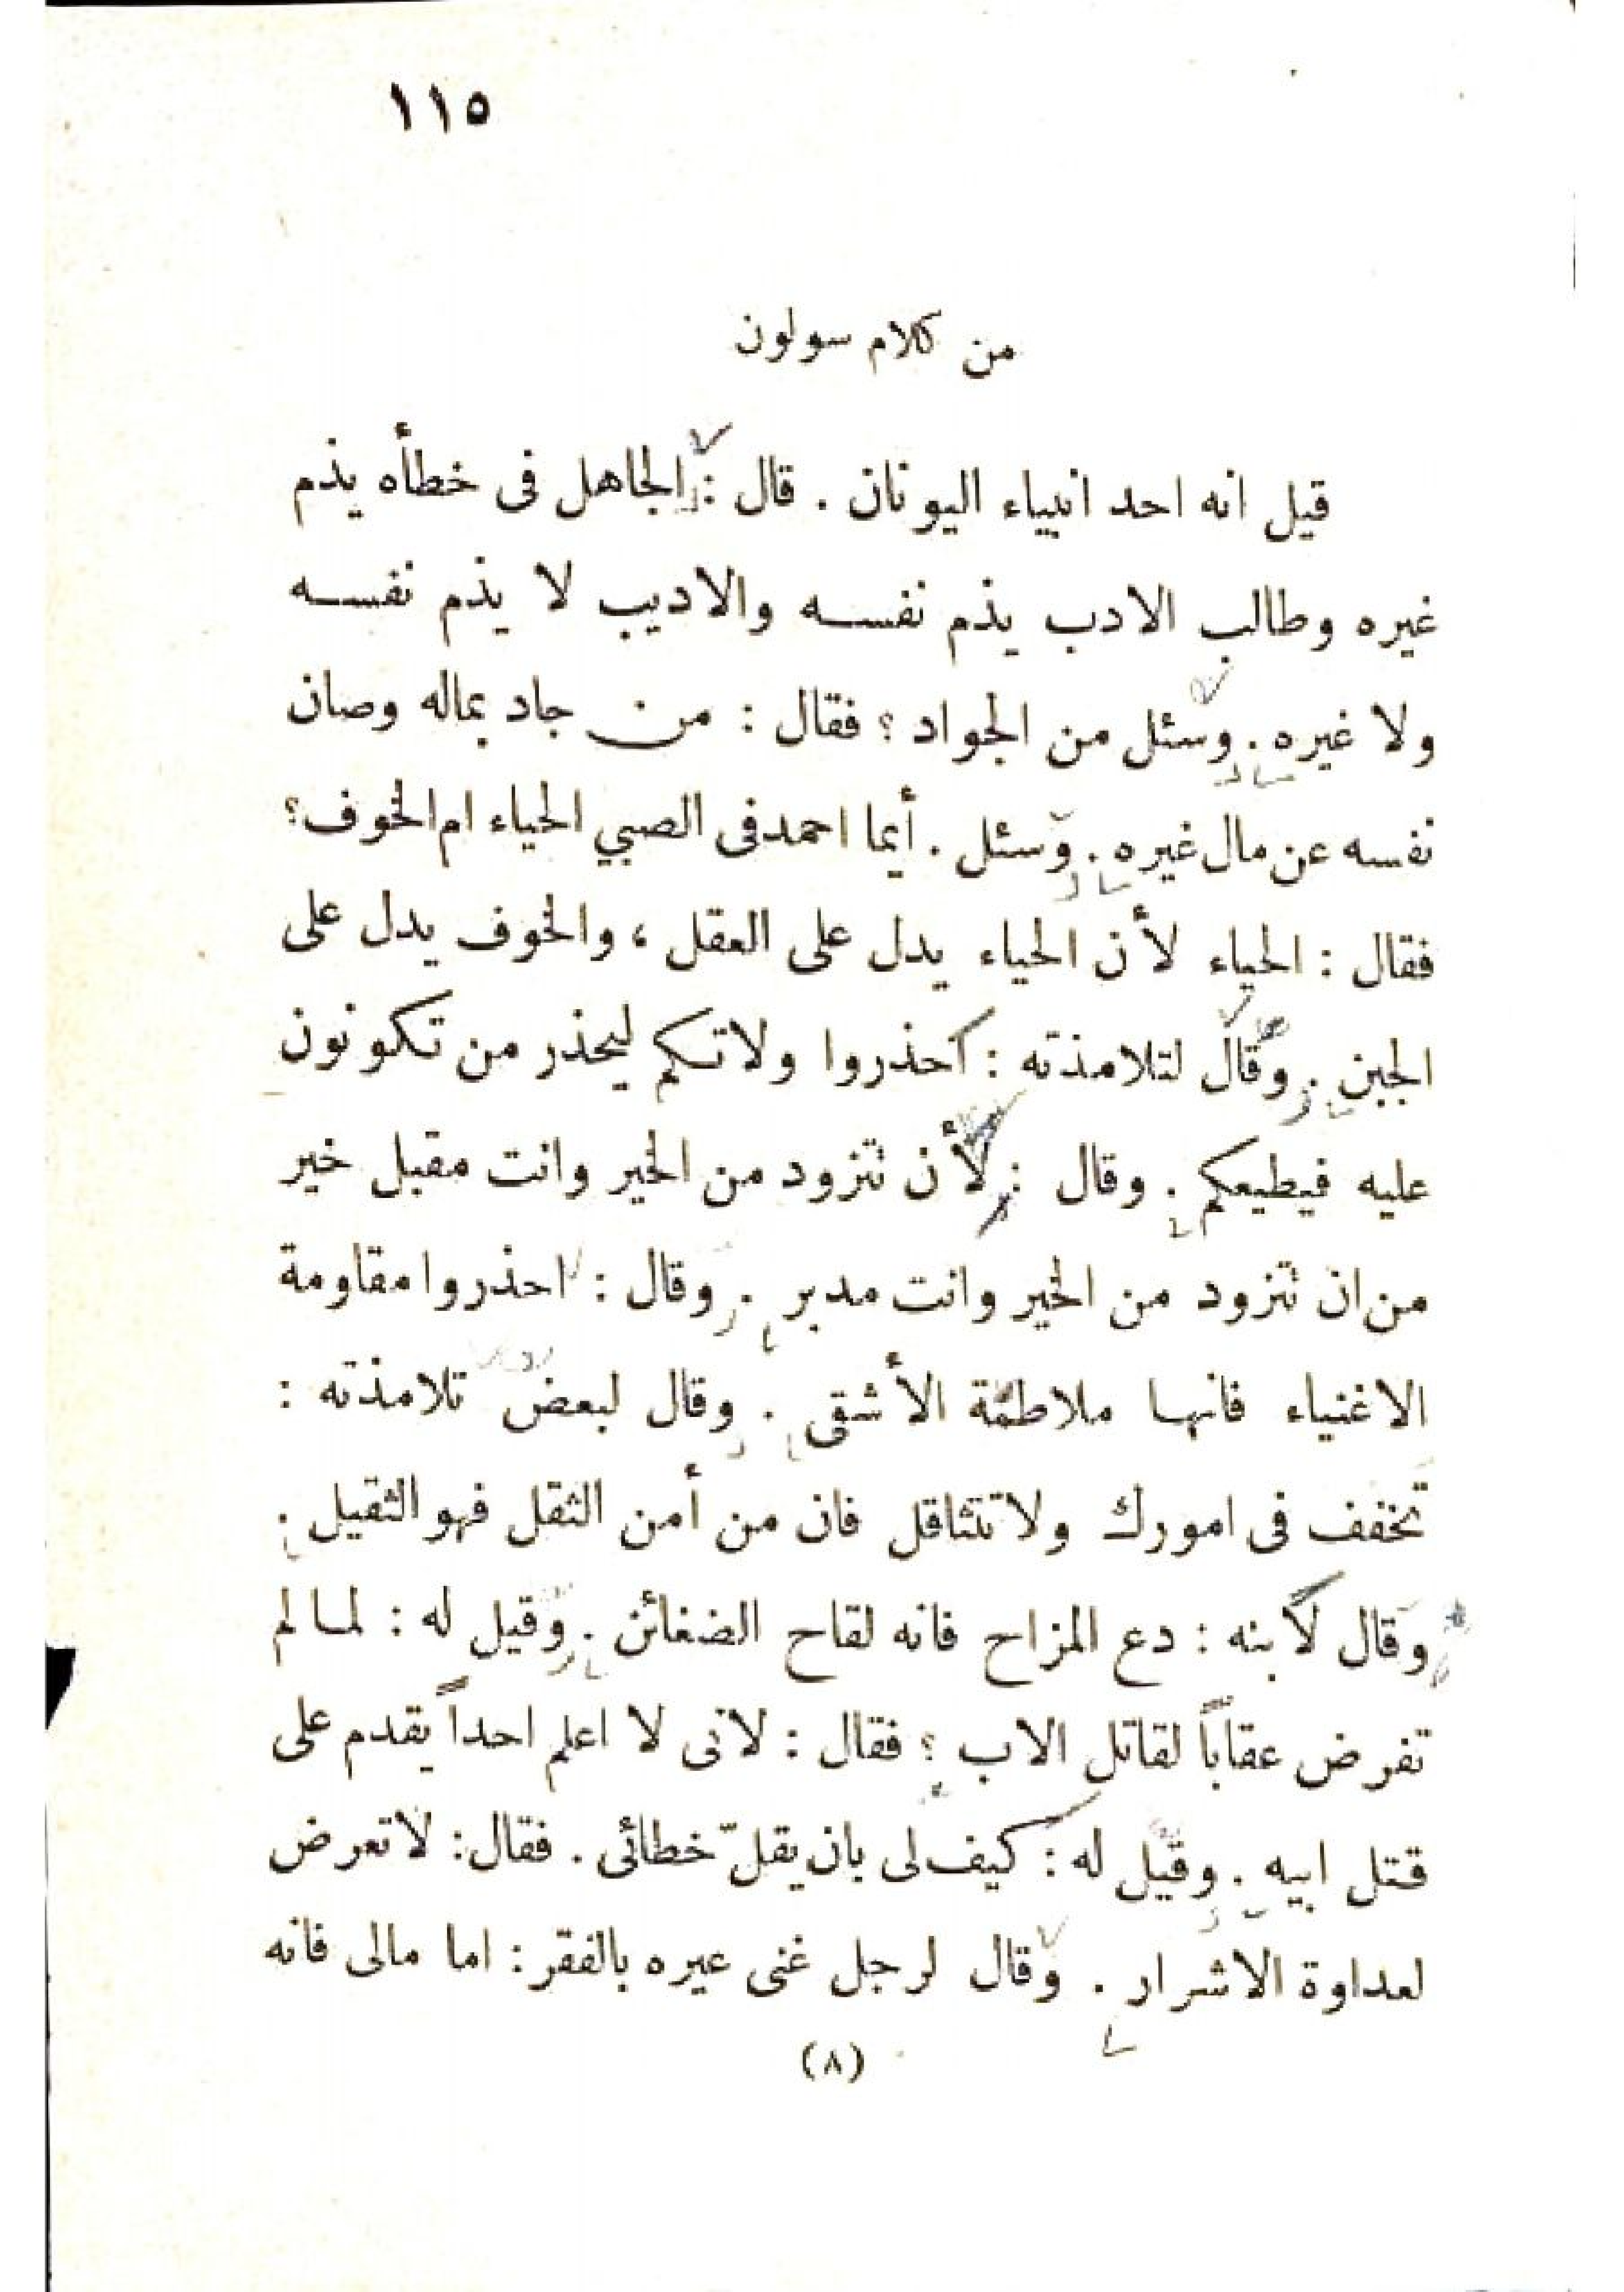 ١١٥
من كلام سولون
قيل انه احد انبياء اليونان . قال : الجاهل فى خطأه يذم
غيره وطالب الادب يذم نفسه والاديب لا يذم نفسه
ولا غيره . وسئل من الجواد ؟ فقال : من جاد بماله وصان
نفسه عن مال غيره . وسئل . أيما احمد فى الصبي الحياء ام الخوف ؟
فقال : الحياء لأن الحياء يدل على العقل ، والخوف يدل على
الجبن . وقال لتلامذته : احذروا ولاتكم ليحذر من تكونون
عليه فيطيعكم . وقال : لأن تتزود من الخير وانت مقبل خير
من ان تتزود من الخير وانت مدبر . وقال : احذروا مقاومة
الاغنياء فانها ملاطمة الأشقى . وقال لبعض تلامذته :
تخفف فى امورك ولا تتثاقل فان من أمن الثقل فهو الثقيل .
وقال لابنه : دع المزاح فانه لقاح الضغائن . وقيل له : لما لم
تفرض عقاباً لقاتل الاب ؟ فقال : لانى لا اعلم احداً يقدم على
قتل ابيه . وقيل له : كيف لى بان يقلّ خطائى . فقال : لا تعرض
لعداوة الاشرار . وقال لرجل غنى عيره بالفقر : اما مالى فانه
(٨)